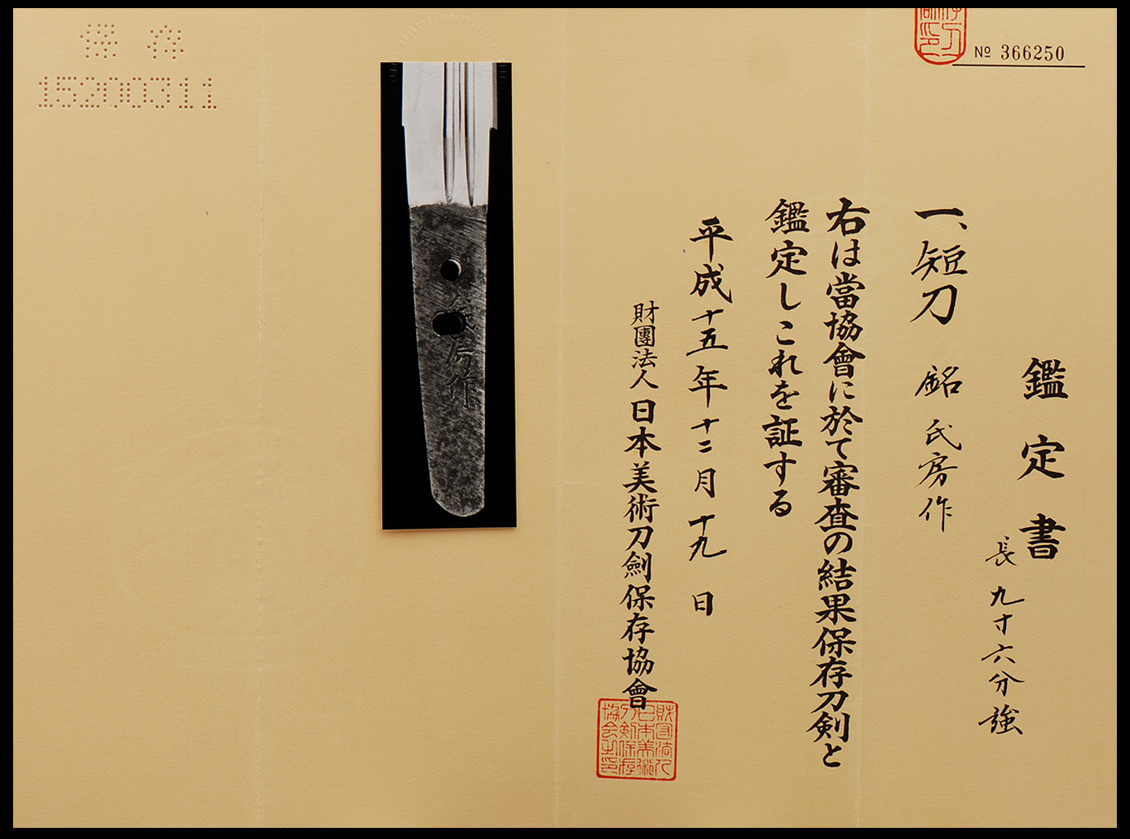 保存
15200311
№ 366250
鑑定書
一、短刀 銘 氏房作
長 九寸六分強
右は當協會に於て審査の結果保存刀剣と
鑑定しこれを証する
平成十五年十二月十九日
財團法人日本美術刀劍保存協會
財団法人
日本美術
刀剣保存
協会之印
房作